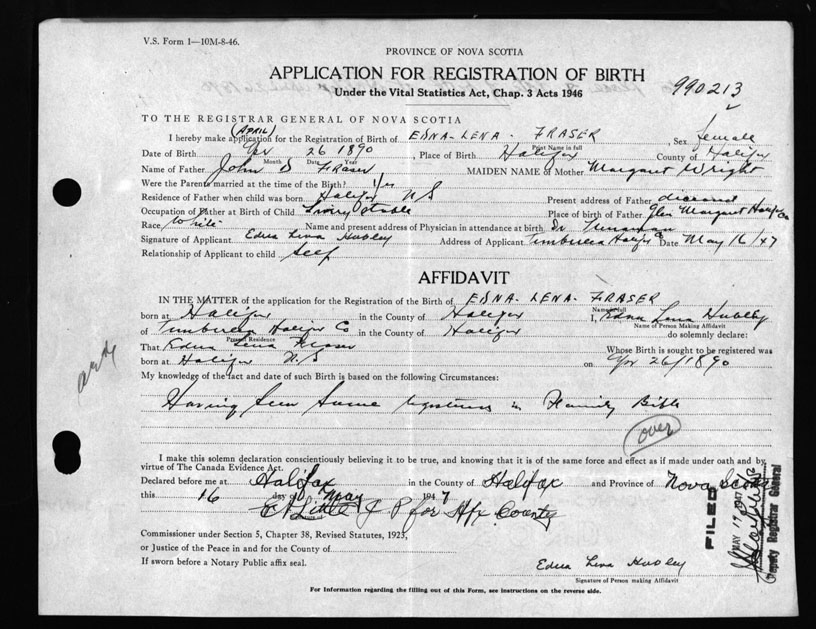 V.S. Form 1—10M-8-46.
PROVINCE OF NOVA SCOTIA
APPLICATION FOR REGISTRATION OF BIRTH
Under the Vital Statistics Act, Chap. 3 Acts 1946
990213
TO THE REGISTRAR GENERAL OF NOVA SCOTIA
(APRIL)
I hereby make application for the Registration of Birth of EDNA-LENA-FRASER, Sex female
Print Name in full
Date of Birth 26 1890, Place of Birth Halifax County of Halifax
Month Date Year
Name of Father John D Fraser MAIDEN NAME of Mother Margaret Wright
Were the Parents married at the time of the Birth? Yes
Residence of Father when child was born Halifax N S Present address of Father deceased
Occupation of Father at Birth of Child Livery Stable Place of birth of Father Glen Margaret Halifax Co
Race White Name and present address of Physician in attendance at birth Dr
Signature of Applicant Edna Lena Hubley Address of Applicant Timberlea Halifax Co Date May 16/47
Relationship of Applicant to child Self
AFFIDAVIT
IN THE MATTER of the application for the Registration of the Birth of EDNA-LENA-FRASER
Name in full
born at Halifax in the County of Halifax I, Edna Lena Hubley
Name of Person Making Affidavit
of Timberlea Halifax Co in the County of Halifax do solemnly declare:
Present Residence
That Edna Lena Fraser Whose Birth is sought to be registered was
born at Halifax N.S on 26/1890
My knowledge of the fact and date of such Birth is based on the following Circumstances:
Having Seen Same in Family Bible
over
I make this solemn declaration conscientiously believing it to be true, and knowing that it is of the same force and effect as if made under oath and by
virtue of The Canada Evidence Act.
Declared before me at Halifax in the County of Halifax and Province of Nova Scotia
this 16 day of May 1947
J P for Hfx County
Commissioner under Section 5, Chapter 38, Revised Statutes, 1923,
or Justice of the Peace in and for the County of
If sworn before a Notary Public affix seal.
Edna Lena Hubley
Signature of Person making Affidavit
For Information regarding the filling out of this Form, see instructions on the reverse side.
FILED
MAY 17 1947
Deputy Registrar General